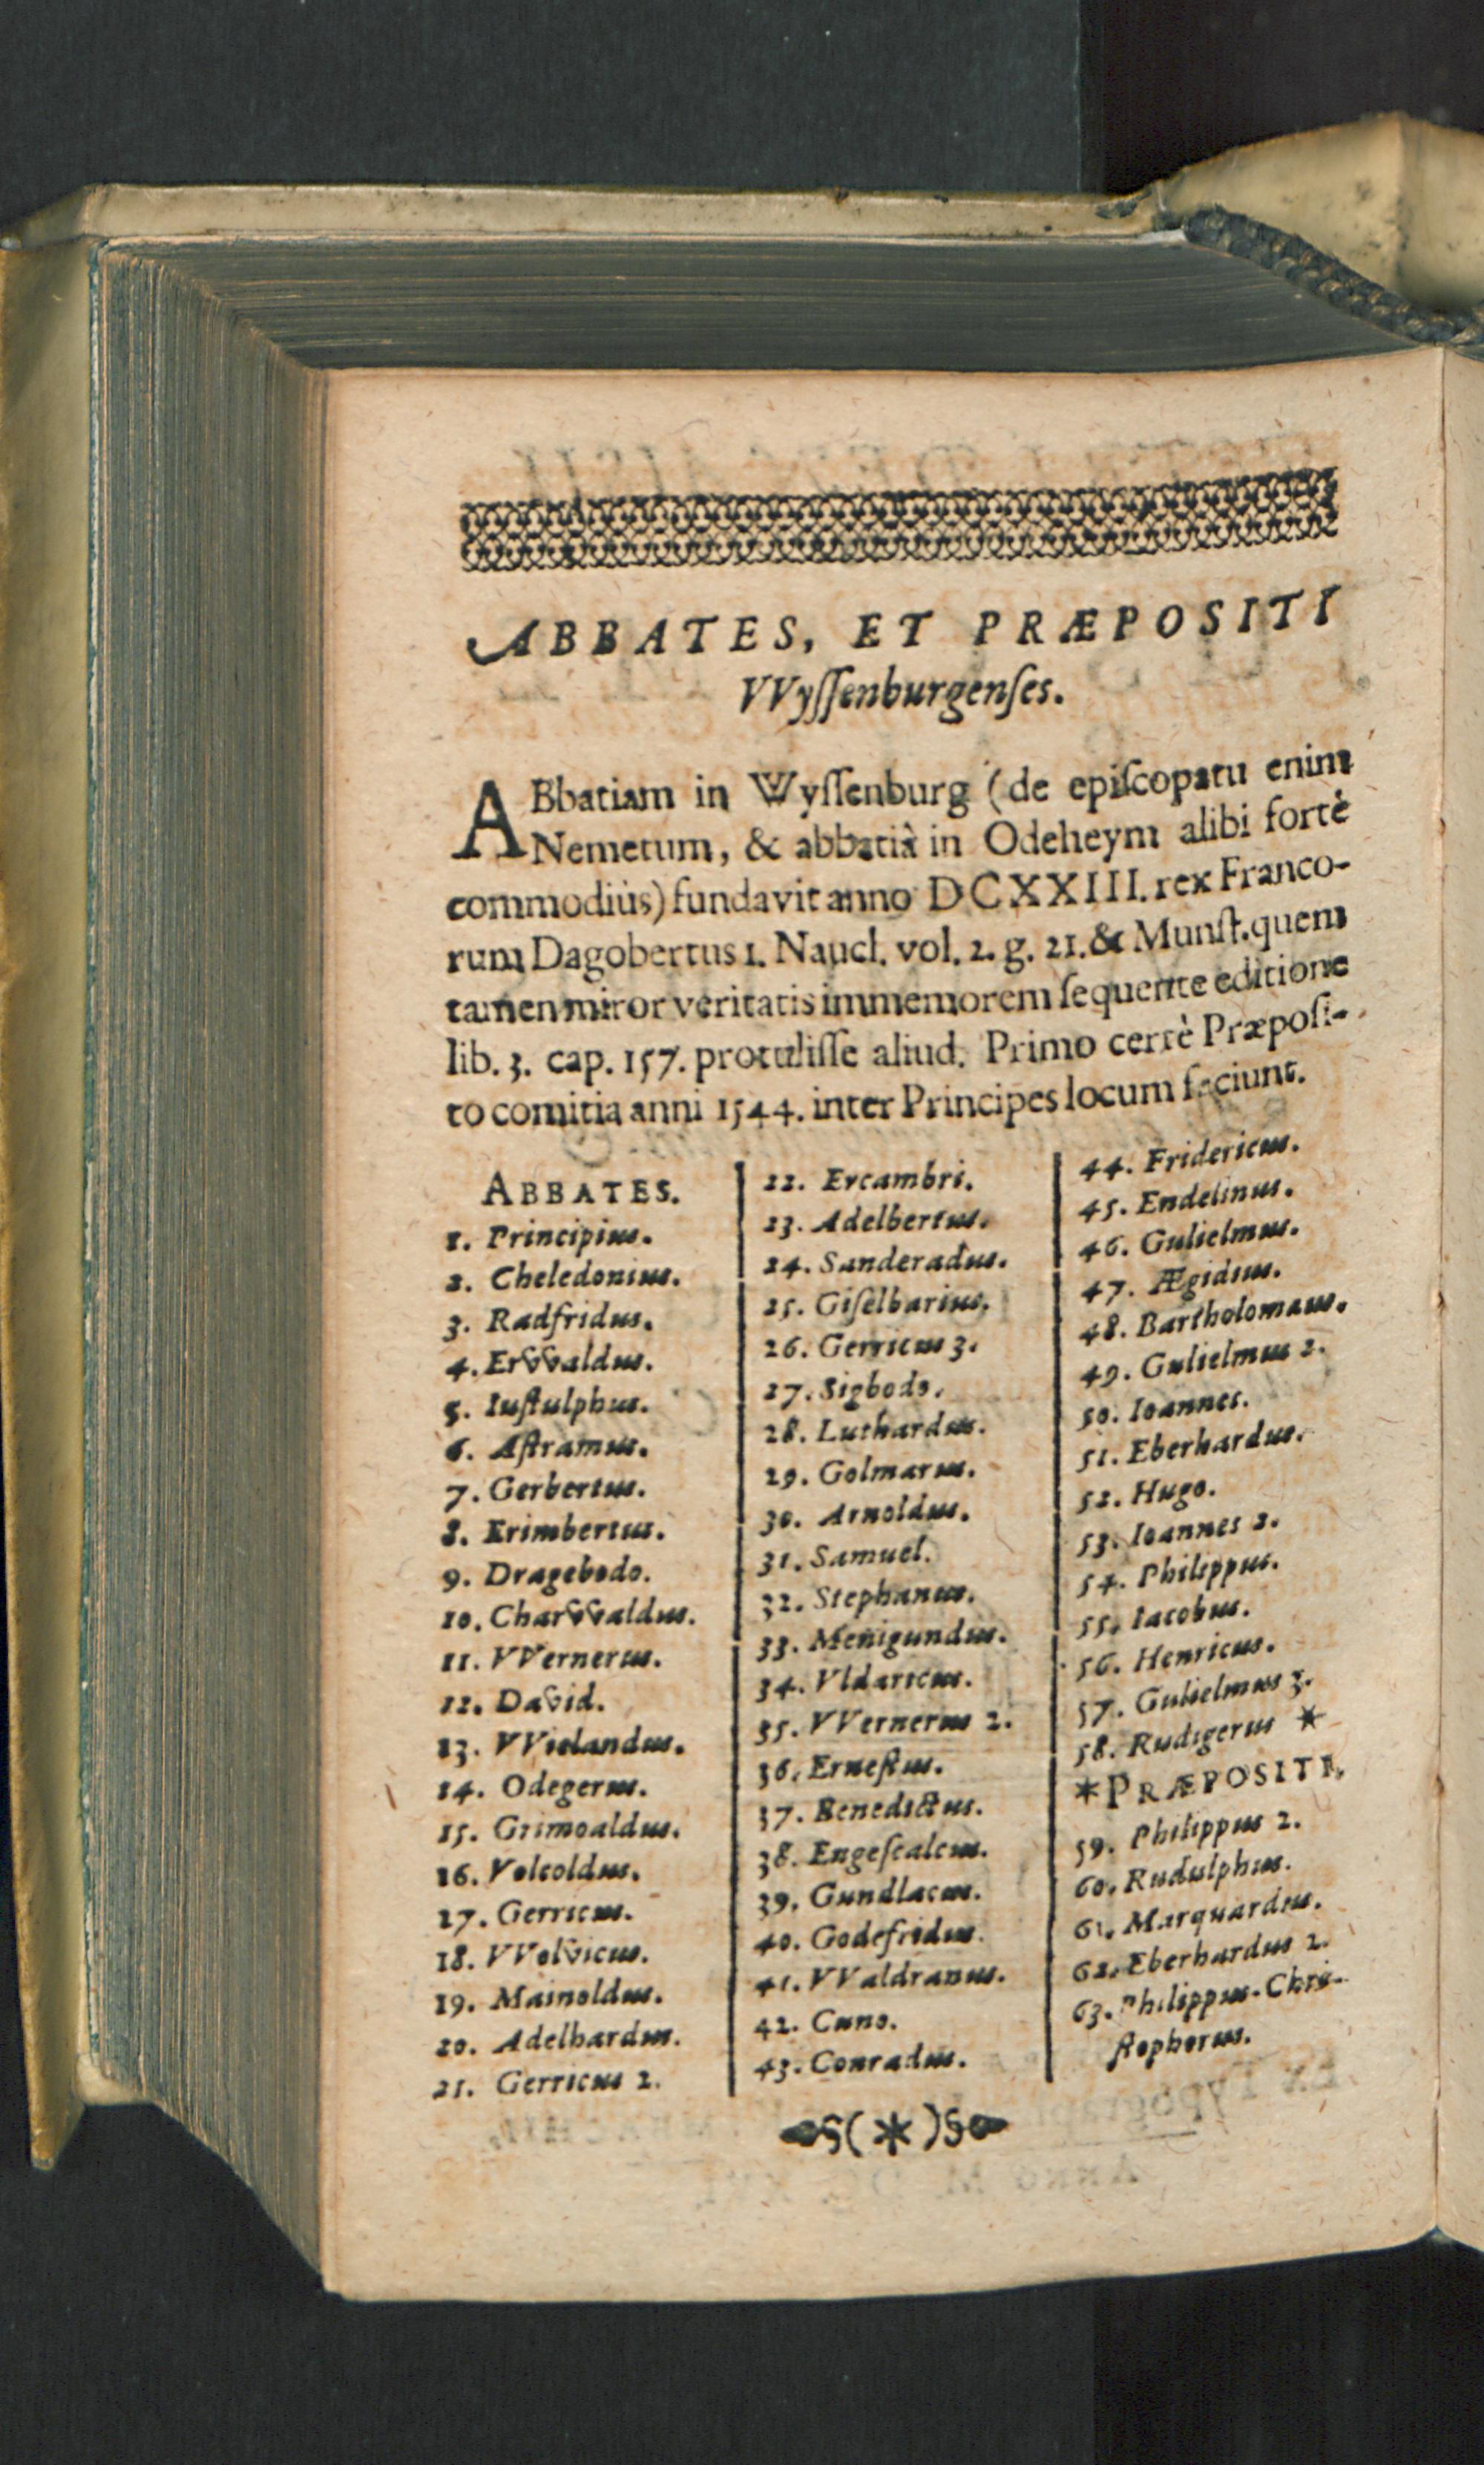 ABBATES, ET PRÆPOSITI
VVyſſenburgenſes.
ABbatiam in Wyſſenburg (de epiſcopatu enim
Nemetum, & abbatià in Odeheym alibi fortè
commodiùs) fundavit anno DCXXIII. rex Franco-
rum Dagobertus 1. Naucl. vol. 2. g. 21. & Munſt. quem
tamen miror veritatis immemorem ſequente editione
lib. 3. cap. 157. protuliſſe aliud. Primo certè Præpoſi-
to comitia anni 1544. inter Principes locum faciunt.
ABBATES.
1. Principius.
2. Cheledonius.
3. Radfridus.
4. Ervvaldus.
5. Iuſtulphus.
6. Aſtramus.
7. Gerbertus.
8. Erimbertus.
9. Dragebodo.
10. Charvvaldus.
11. VVernerus.
12. David.
13. VVielandus.
14. Odegerus.
15. Grimoaldus.
16. Volcoldus.
17. Gerricus.
18. VVolvicus.
19. Mainoldus.
20. Adelhardus.
21. Gerricus 2.
22. Ercambri.
23. Adelbertus.
24. Sanderadus.
25. Giſelbarius.
26. Gerricus 3.
27. Sigbodo.
28. Luthardus.
29. Golmarus.
30. Arnoldus.
31. Samuel.
32. Stephanus.
33. Menigundus.
34. Vldaricus.
35. VVernerus 2.
36. Erneſtus.
37. Benedictus.
38. Engeſcalcus.
39. Gundlacus.
40. Godefridus.
41. VValdranus.
42. Cuno.
43. Conradus.
44. Fridericus.
45. Endelinus.
46. Gulielmus.
47. Ægidius.
48. Bartholomæus.
49. Gulielmus 2.
50. Ioannes.
51. Eberhardus.
52. Hugo.
53. Ioannes 2.
54. Philippus.
55. Iacobus.
56. Henricus.
57. Gulielmus 3.
58. Rudigerus *
*PRÆPOSITI.
59. Philippus 2.
60. Rudulphus.
61. Marquardus.
62. Eberhardus 2.
63. Philippus-Chri-
ſtophorus.
§(*)§